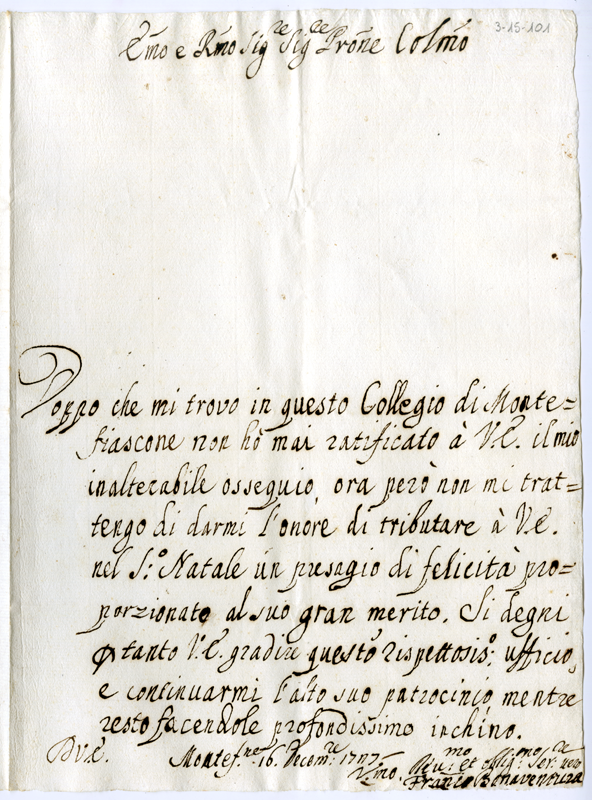 3-15-101
Emo e Rmo Sig.re Sig.re Prone Colmo
Doppo che mi trovo in questo Collegio di Monte=
fiascone non hò mai ratificato à V.E. il mio
inalterabile ossequio, ora però non mi trat=
tengo di darmi l'onore di tributare à V.E.
nel S.o Natale un presagio di felicità pro=
porzionato al suo gran merito. Si degni
ptanto V.E. gradire questo rispettosis.o ufficio,
e continuarmi l'alto suo patrocinio, mentre
resto facendole profondissimo inchino.
D.V.E. Montef.ne 16. Decem.re
Vmo. et obblig.mo Ser.re
Franco Bonaventura